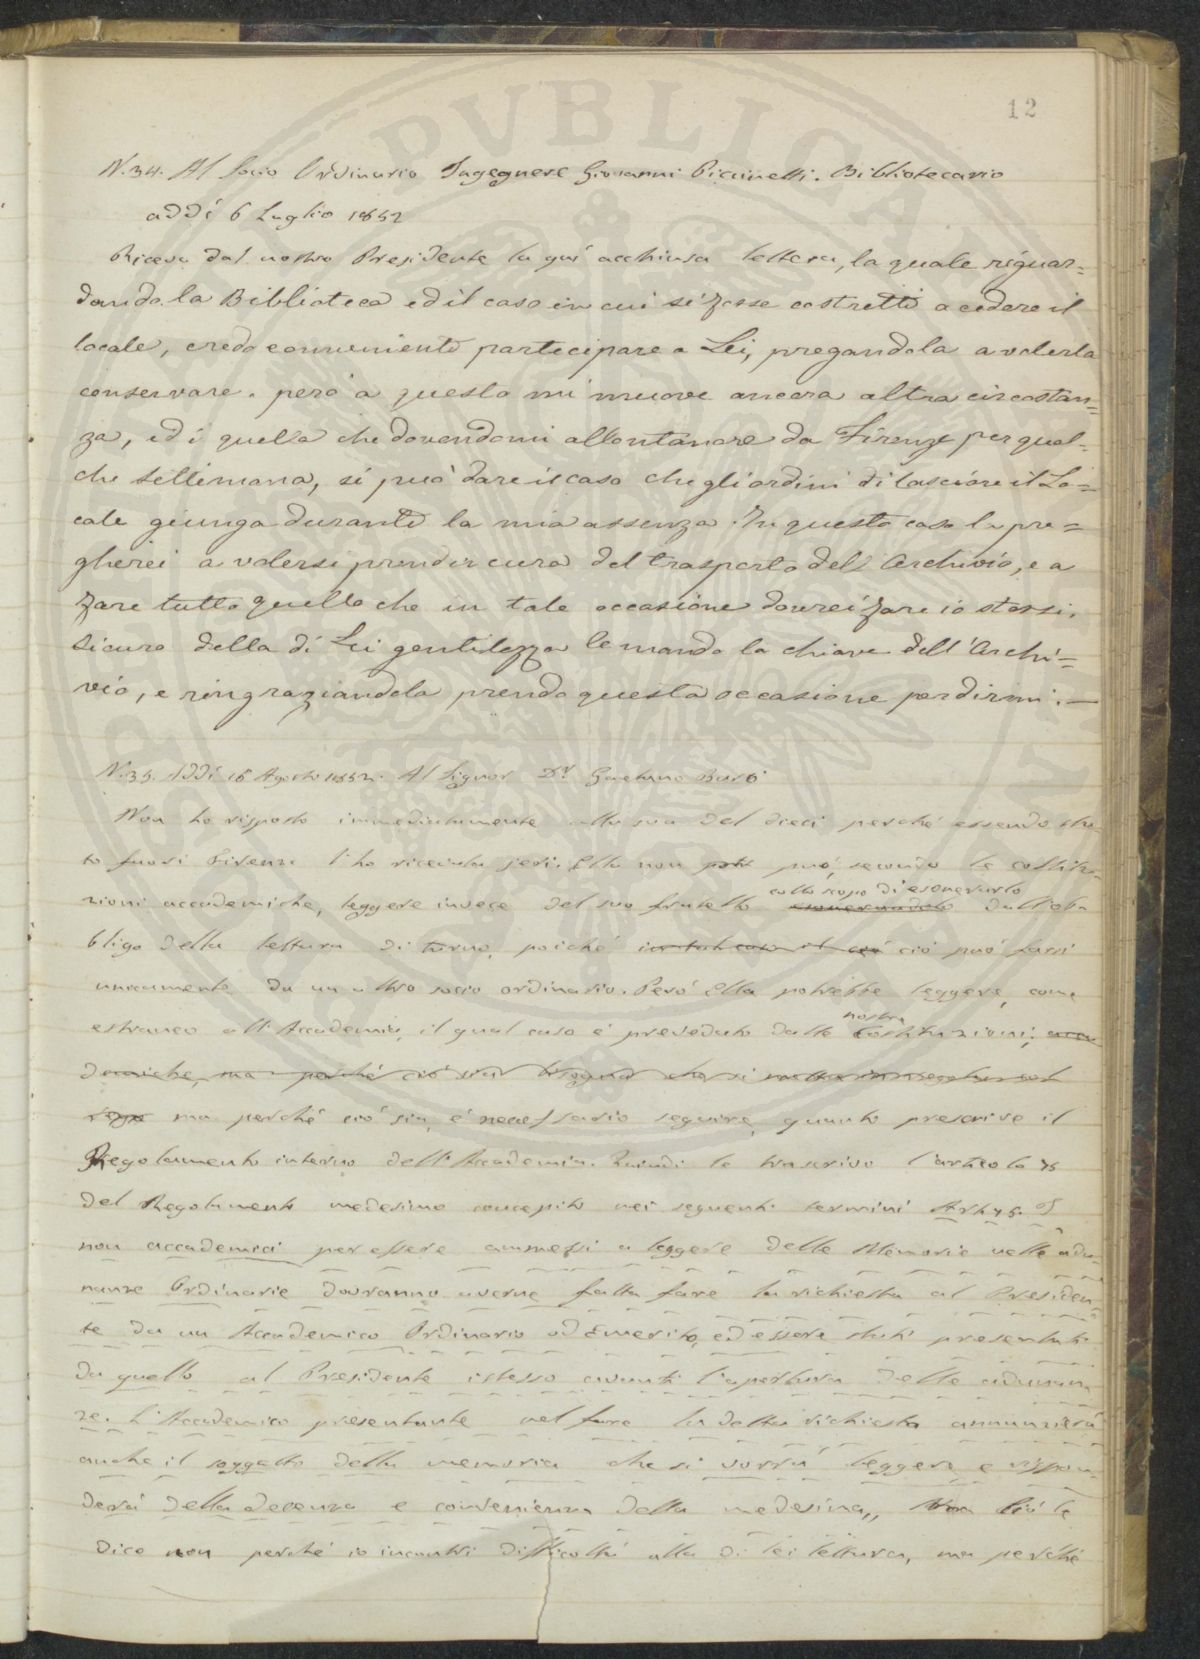 12
N.34. Al Socio Ordinario Ingegnere Giovanni Piccinelli. Bibliotecario
addì 6 Luglio 1852
Riceva dal nostro Presidente la quì acchiusa lettera, la quale riguar=
dando la Biblioteca ed il caso in cui si fosse costretti a cedere il
locale, credo conveniente partecipare a Lei, pregandola a volerla
conservare. però a questo mi muove ancora altra circostan=
za, ed è quella che dovendomi allontanare da Firenze per qual=
che settimana, si può dare il caso che gli ordini di lasciare il Lo=
cale giunga durante la mia assenza. In questo caso la pre=
gherei a volersi prender cura del trasporto dell'Archivio, e a
fare tutto quello che in tale occasione dovrei fare io stessi.
Sicuro della di Lei gentilezza le mando la chiave dell'Archi=
vio, e ringraziandola prendo questa occasione per dirmi. —
N.35. Addì 16 Agosto 1852. Al Signor Dr. Gaetano
Non ho risposto immediatamente alla sua del dieci perché essendo sta
to fuori Firenze l'ho ricevuta jeri. Ella non può, secondo le costitu=
zioni accademiche, leggere invece del suo fratello esonerandolo dall'ob
collo scopo di esonerarlo
bligo della lettura di turno, poiché in tal caso il ciò può farsi
unicamente da un altro socio ordinario. Però Ella potrebbe leggere, come
estraneo all'Accademia, il qual caso è preveduto dalle Costituzioni; acca
nostre
demiche, ma perché ciò sia bisogna che si
ma perché ciò sia, è necessario seguire, quanto prescrive il
Regolamento interno dell'Accademia. Quindi le trascrivo l'articolo 75
del Regolamento medesimo concepito nei seguenti termini Art. 75. I
non accademici per essere ammessi a leggere delle Memorie nelle adu=
nanze Ordinarie dovranno averne fatta fare la richiesta al Presiden=
te da un Accademico Ordinario od Emerito, ed essere stati presentati
da quello al Presidente istesso avanti l'apertura delle adunan
ze. L'Accademico presentante nel fare la detta richiesta annunzierà
anche il soggetto della memoria che si vorrà leggere e rispon=
derà della decenza e convenienza della medesima,, Ciò le
dico non perché io incontri difficoltà alla di lei lettura, ma perché